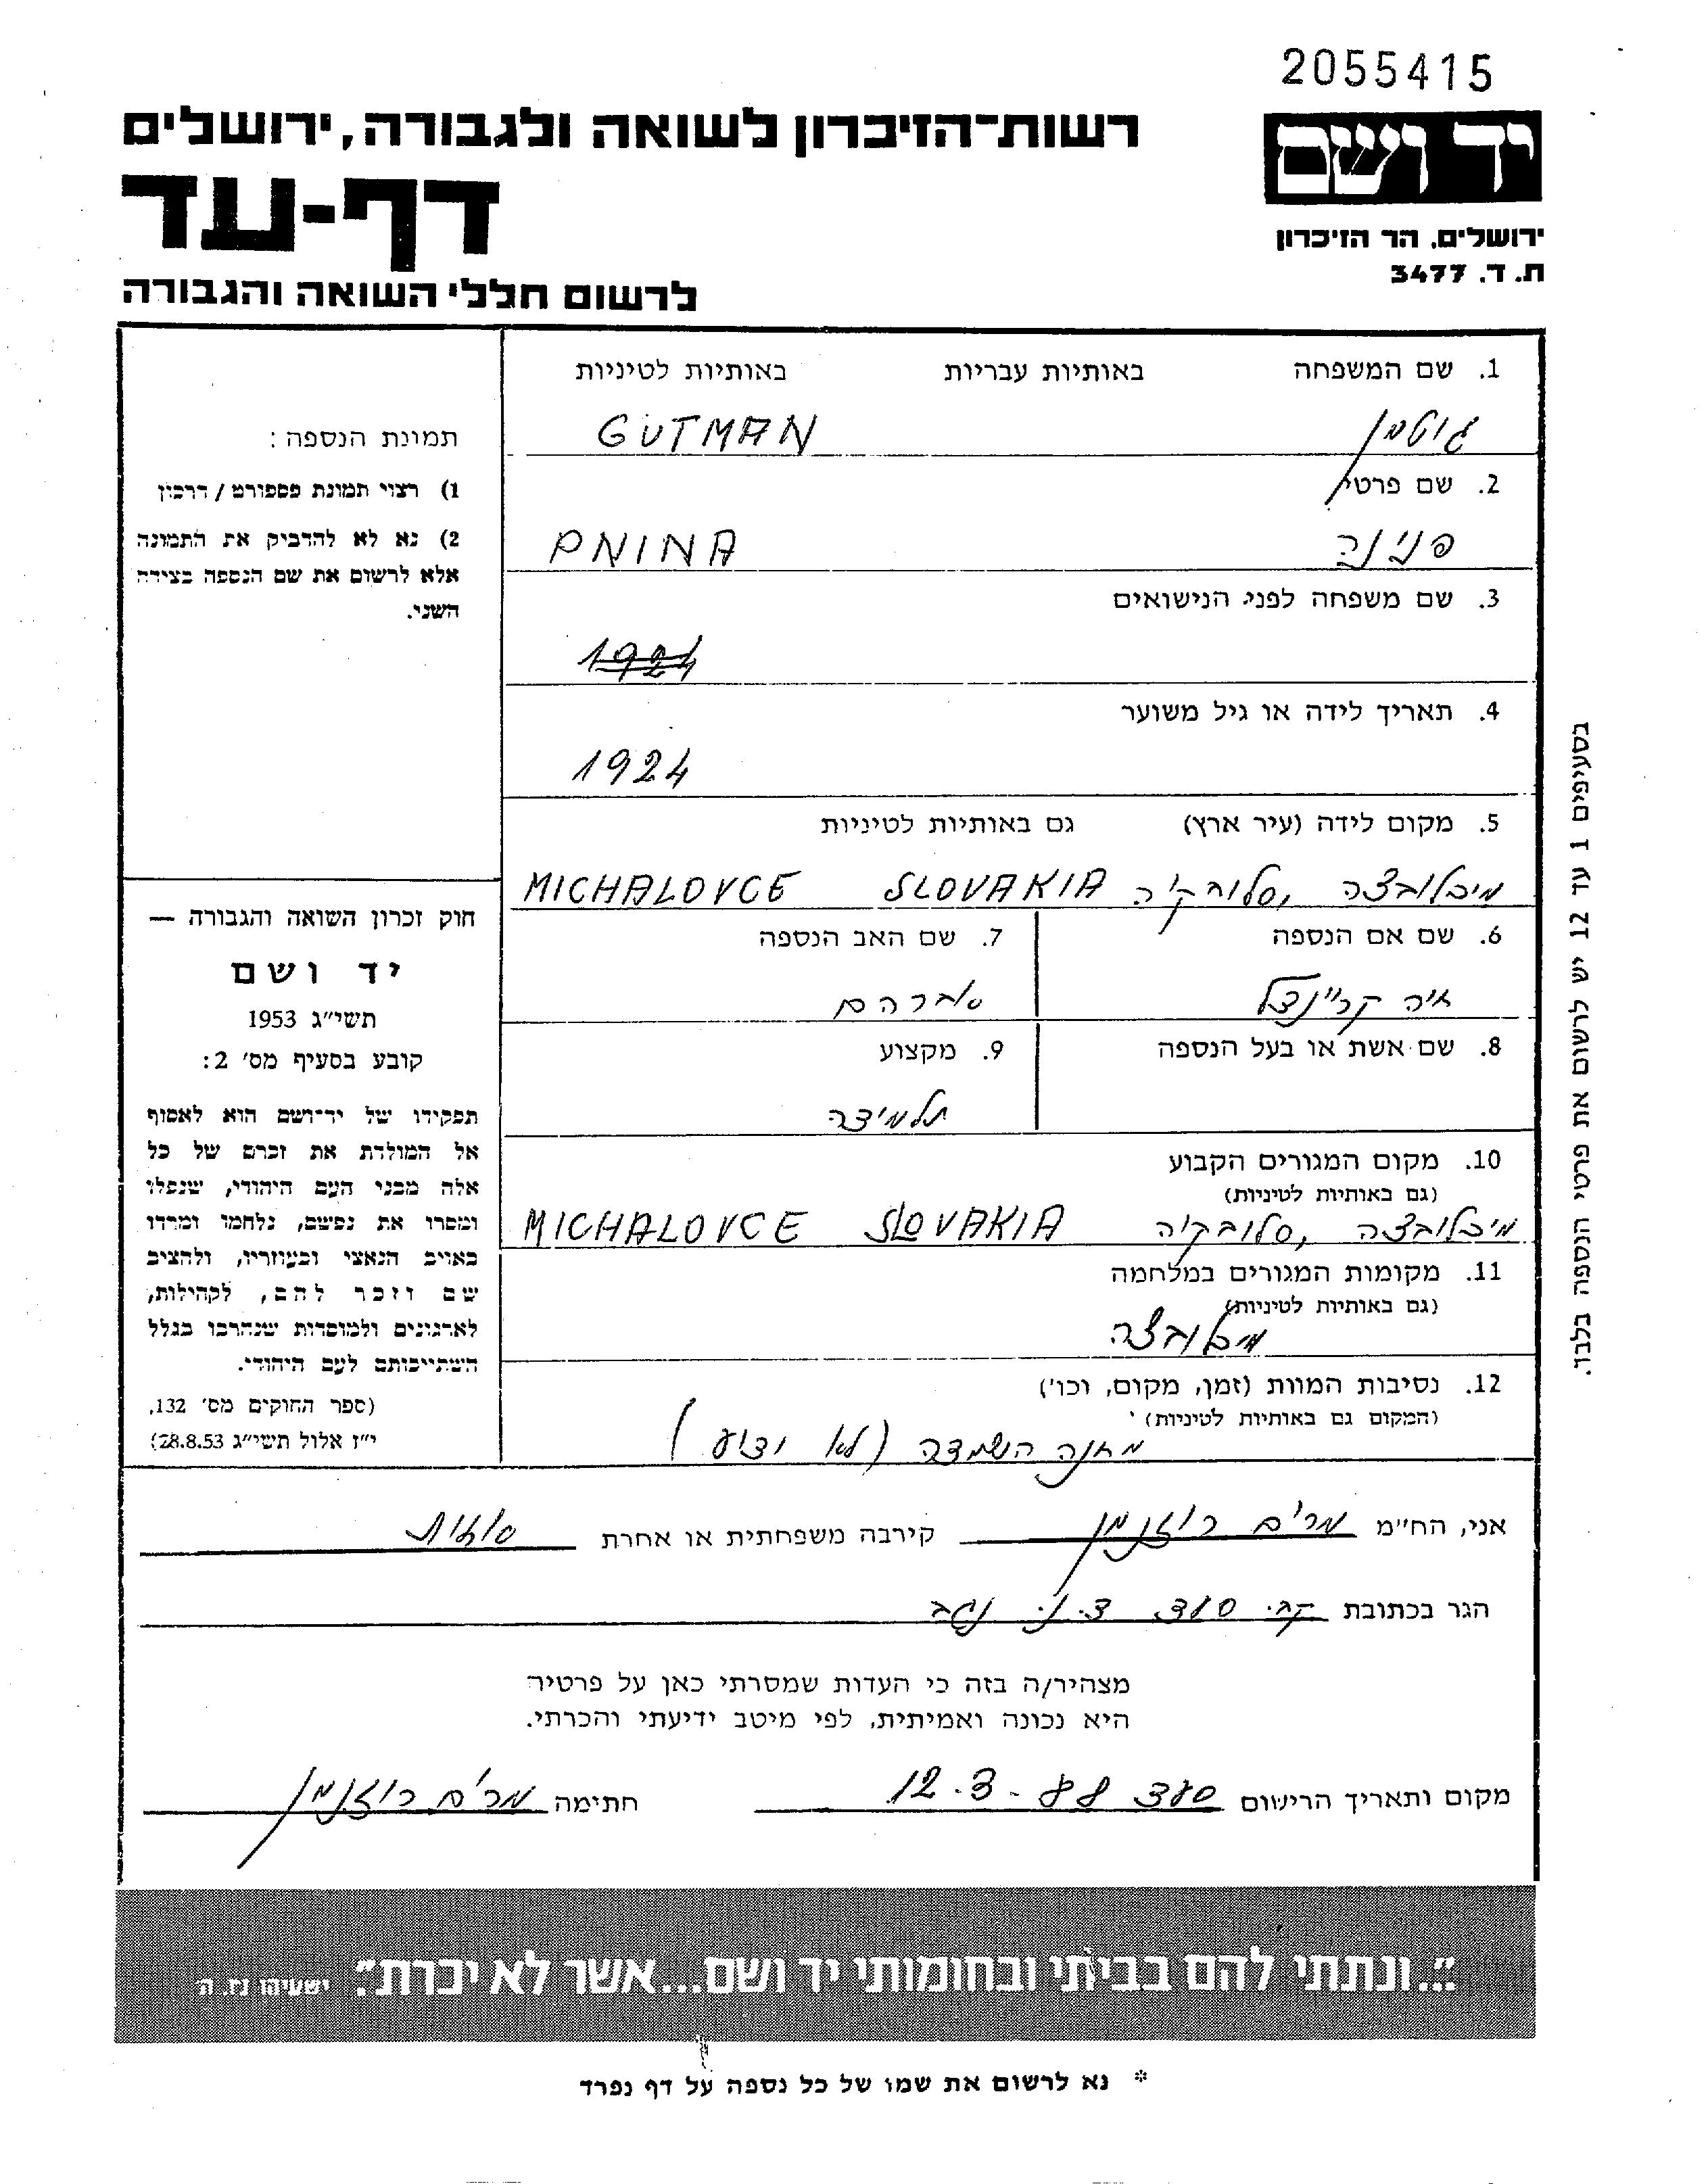 2055415
יד ושם
ירושלים, הר הזיכרון
ת. ד. 3477
רשות־הזיכרון לשואה ולגבורה, ירושלים
דף-עד
לרשום חללי השואה והגבורה
1. שם המשפחה באותיות עבריות באותיות לטיניות
גוטמן GUTMAN
2. שם פרטי
פנינה PNINA
3. שם משפחה לפני הנישואים
1924
4. תאריך לידה או גיל משוער
1924
5. מקום לידה (עיר ארץ) גם באותיות לטיניות
מיכלובצה, סלובקיה MICHALOVCE SLOVAKIA
6. שם אם הנספה
7. שם האב הנספה
אברהם
8. שם אשת או בעל הנספה
9. מקצוע
תלמידה
10. מקום המגורים הקבוע
(גם באותיות לטיניות)
מיכלובצה, סלובקיה MICHALOVCE SLOVAKIA
11. מקומות המגורים במלחמה
(גם באותיות לטיניות)
מיכלובצה
12. נסיבות המוות (זמן, מקום, וכו')
(המקום גם באותיות לטיניות)
מחנה השמדה (לא ידוע)
תמונת הנספה:
1) רצוי תמונת פספורט / דרכון
2) נא לא להדביק את התמונה
אלא לרשום את שם הנספה בצידה
השני.
חוק זכרון השואה והגבורה —
יד ושם
תשי"ג 1953
קובע בסעיף מס' 2:
תפקידו של יד־ושם הוא לאסוף
אל המולדת את זכרם של כל
אלה מבני העם היהודי, שנפלו
ומסרו את נפשם, נלחמו ומרדו
באויב הנאצי ובעוזריו, ולהציב
שם וזכר להם, לקהילות,
לארגונים ולמוסדות שנחרבו בגלל
השתייכותם לעם היהודי.
(ספר החוקים מס' 132,
י"ז אלול תשי"ג 28.8.53)
בסעיפים 1 עד 12 יש לרשום את פרטי הנספה בלבד.
אני, הח"מ מרים רוזנמן קירבה משפחתית או אחרת אחות
הגר בכתובת קב. סעד ד.נ. נגב
מצהיר/ה בזה כי העדות שמסרתי כאן על פרטיה
היא נכונה ואמיתית, לפי מיטב ידיעתי והכרתי.
מקום ותאריך הרישום סעד 12.3.88 חתימה מרים רוזנמן
"...ונתתי להם בביתי ובחומותי יד ושם...אשר לא יכרת". ישעיהו נו, ה
* נא לרשום את שמו של כל נספה על דף נפרד